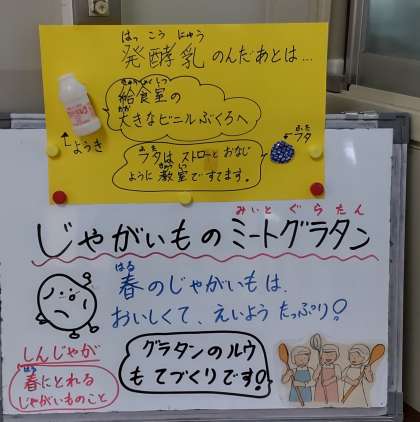 はっ こう にゅう
発酵乳 のんだあとは…
きゅうしょくしつ
給食室の
大きなビニルぶくろへ
ようき
ふた
フタ
ふた
フタは ストローと おなじ
ように 教室ですてます。
みいと ぐらたん
じゃがいものミートグラタン
はる
春のじゃがいもは、
おいしくて、えいよう たっぷり！
しんじゃが
はる
春にとれる
じゃがいものこと
グラタンのルウ
も てづくりです！